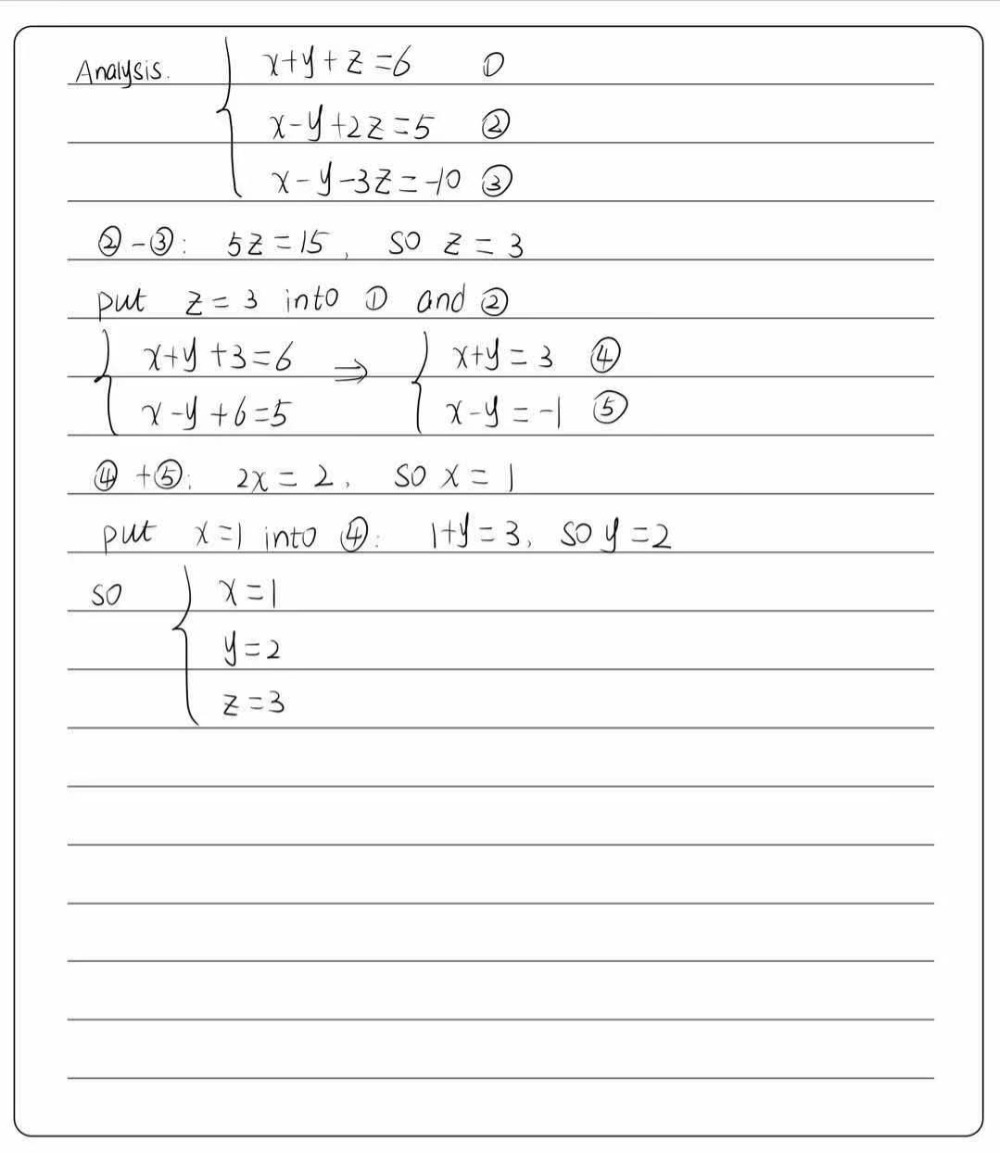 Analysis. { x+y+z=6 ①
x-y+2z=5 ②
x-y-3z=-10 ③
②-③: 5z=15, so z=3
put z=3 into ① and ②
{ x+y+3=6 ⇒ { x+y=3 ④
x-y+6=5 x-y=-1 ⑤
④+⑤: 2x=2, so x=1
put x=1 into ④: 1+y=3, so y=2
so { x=1
y=2
z=3